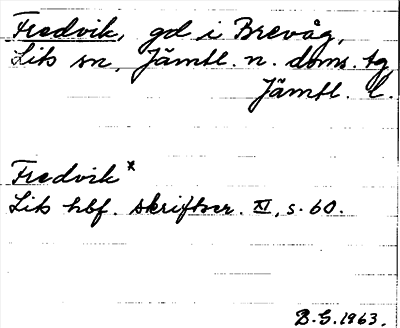 Fredvik, gd i Brevåg,
Lits sn, Jämtl. n. doms. tg,
Jämtl. l.
Fredvik*
Lits hbf. skriftser. XI, s. 60.
B.G. 1963.